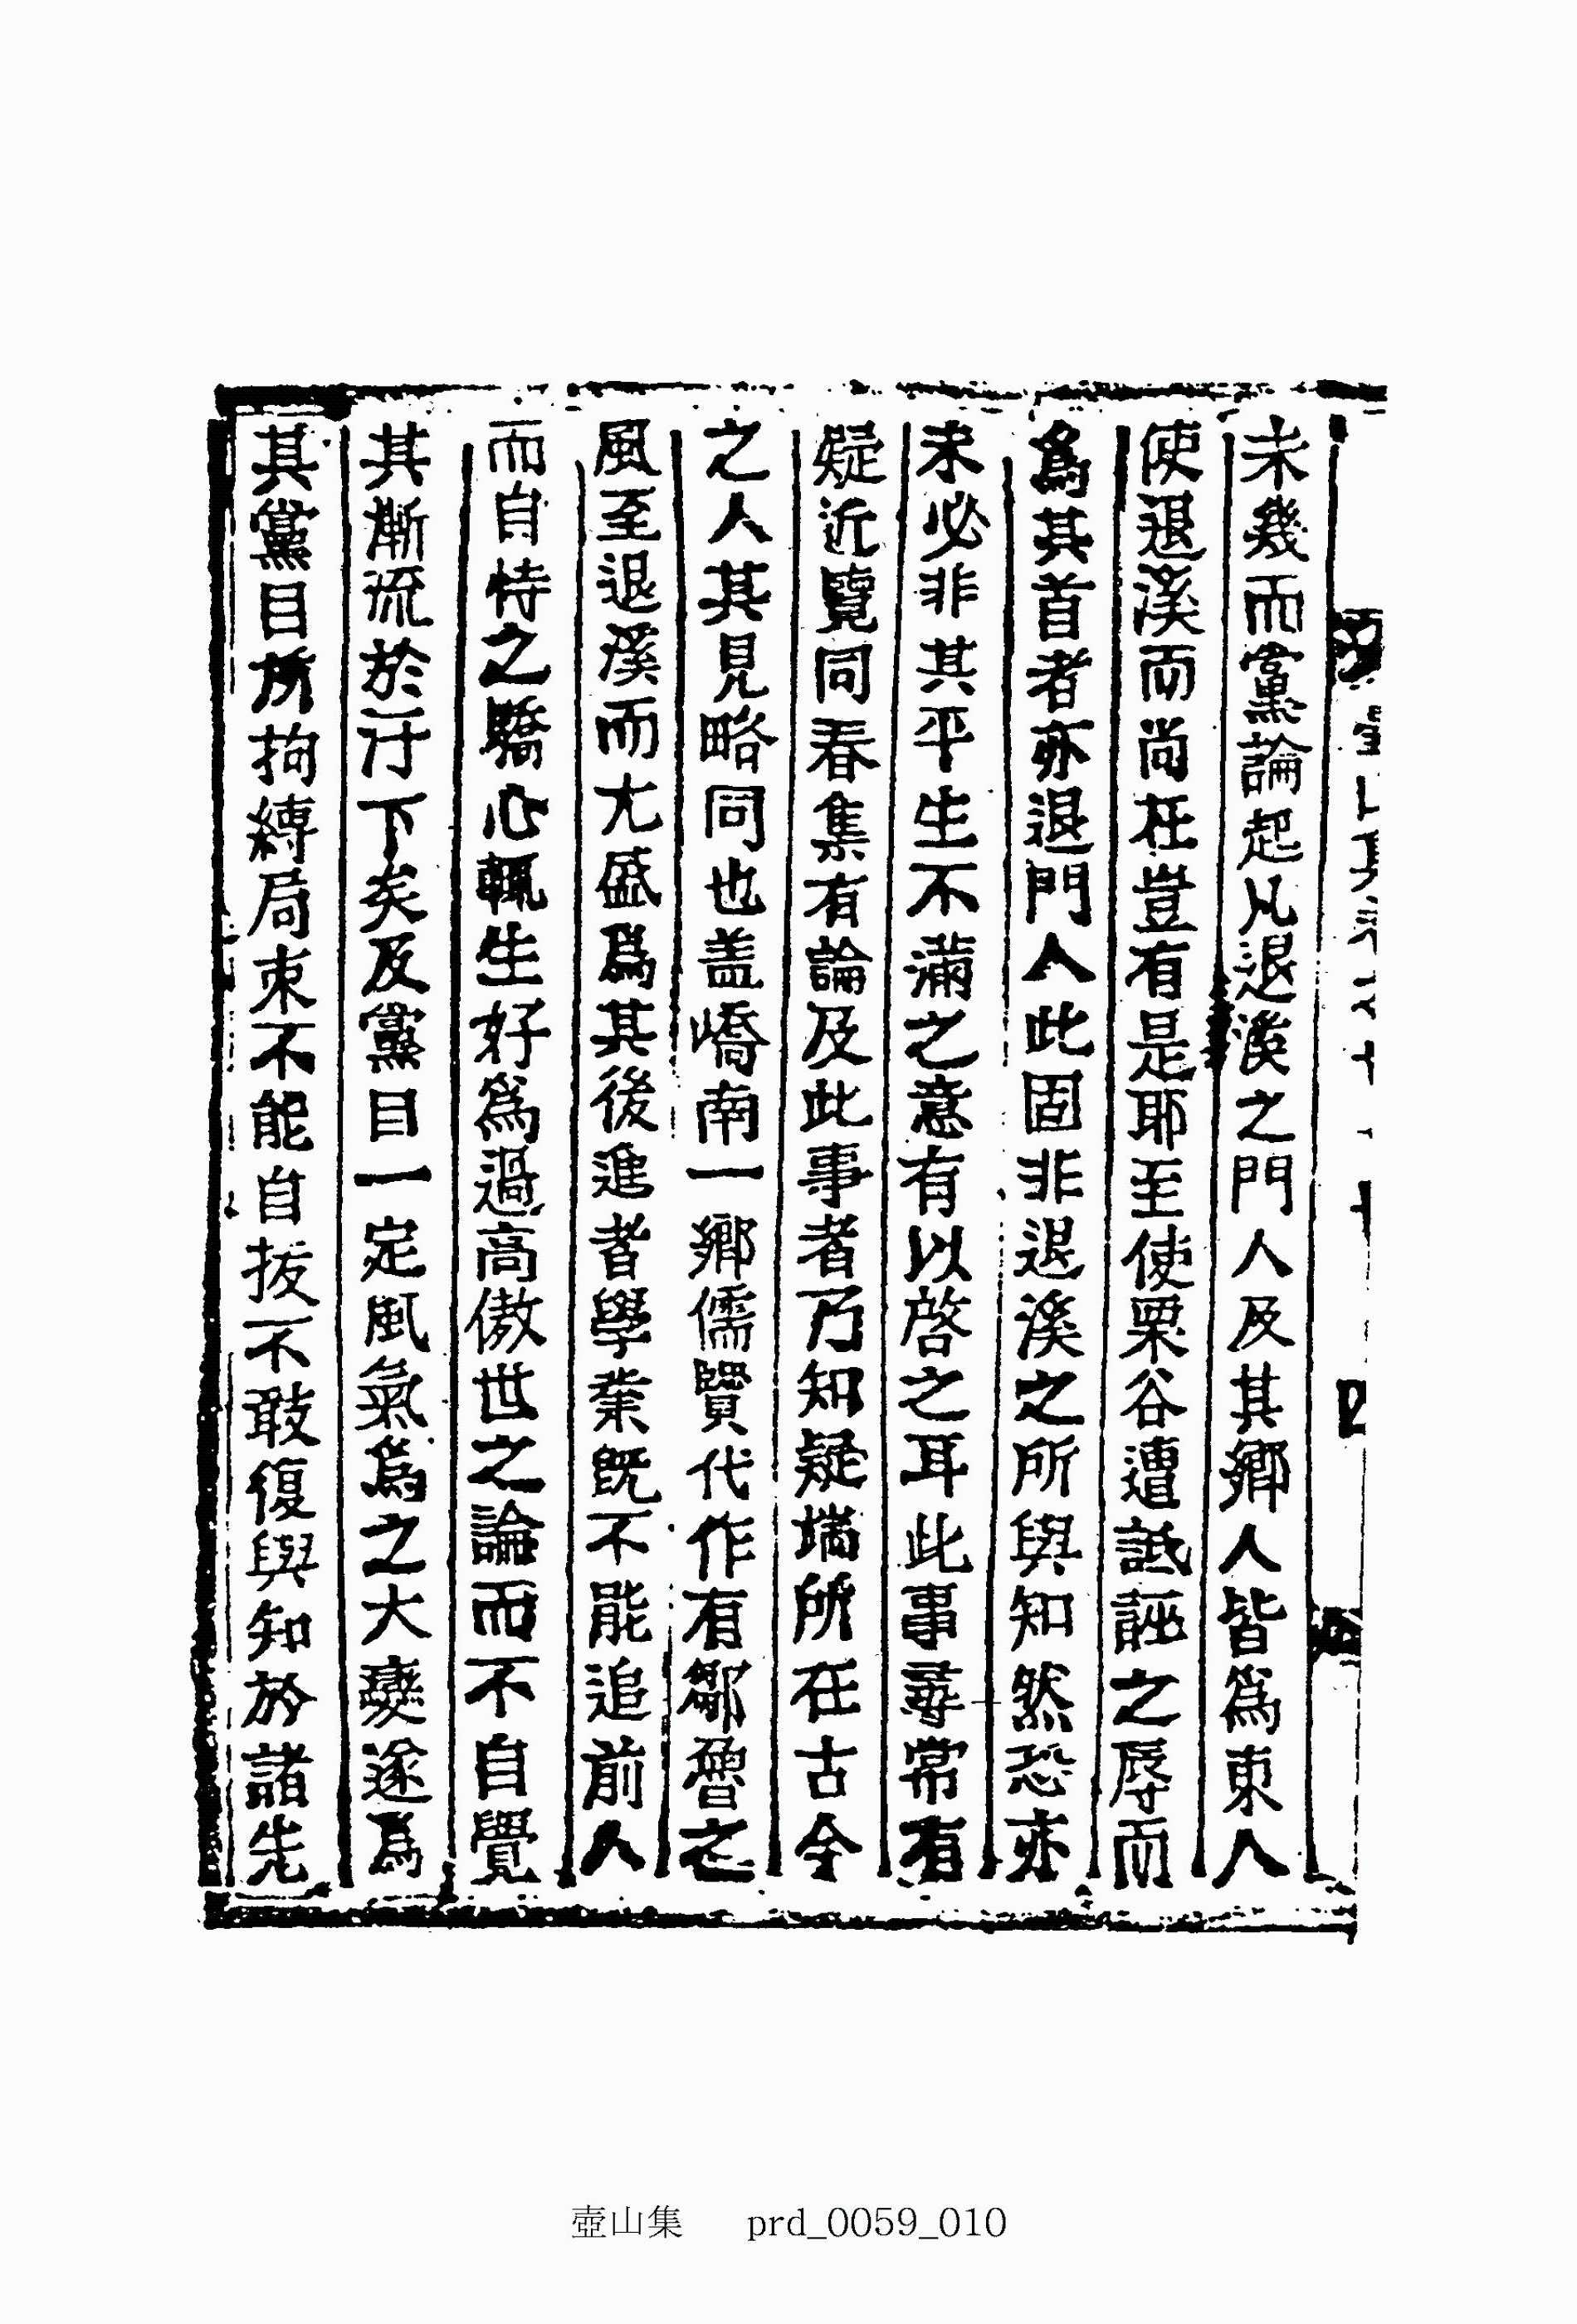 未幾而黨論起凡退溪之門人及其鄕人皆爲東人
使退溪而尚在豈有是耶至使栗谷遭詆誣之辱而
爲其首者亦退門人此固非退溪之所與知然恐亦
未必非其平生不滿之意有以啓之耳此事尋常有
疑近覽同春集有論及此事者乃知疑端所在古今
之人其見略同也盖嶠南一鄕儒賢代作有鄒魯之
風至退溪而尤盛爲其後進者學業旣不能追前人
而自恃之驕心輒生好爲過高傲世之論而不自覺
其漸流於汙下矣及黨目一定風氣爲之大變遂爲
其黨目所拘縛局束不能自拔不敢復與知於諸先
壺山集 prd_0059_010